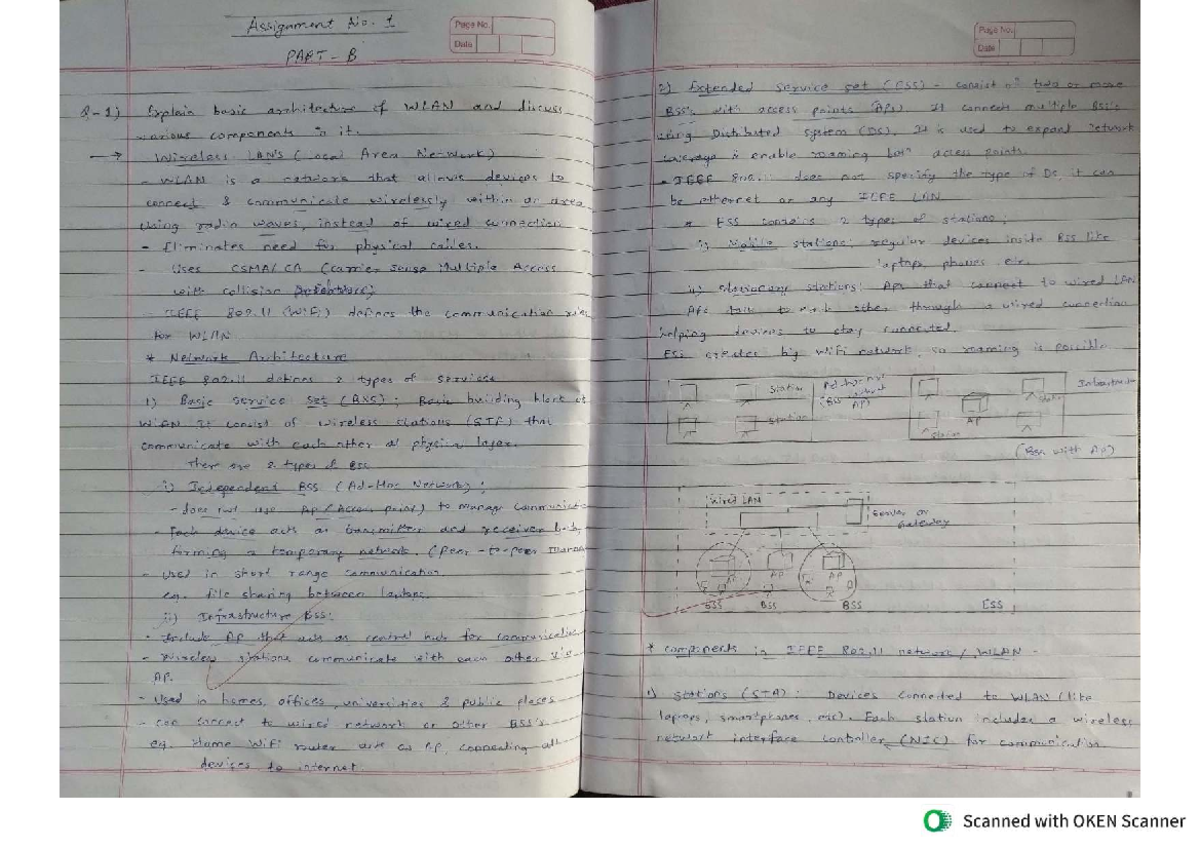 Assignment No. 1
Page No.
Date
PART - B
Q-1) Explain basic architecture of WLAN and discuss
various components in it.
→ Wireless LAN'S (Local Area Network)
- WLAN is a network that allows devices to
connect & communicate wirelessly within an area
using radio waves, instead of wired connection
- Eliminates need for physical cables.
- Uses CSMA/CA (Carrier Sense Multiple Access
with collision
- IEEE 802.11 (WiFi) defines the communication rules
for WLAN
* Network Architecture
IEEE 802.11 defines 2 types of services
1) Basic Service Set (BSS) : Basic building block of
WLAN It consist of wireless stations (STA) that
communicate with each other at physical layer.
There are 2 types of BSS
i) Independent BSS (Ad-Hoc Network) :
- does not use AP (Access point) to manage communicat
- Each device acts as transmitter and receiver both,
forming a temporary network. (Peer-to-peer
- Used in short range communication
eg. file sharing between laptops.
ii) Infrastructure BSS:
- Include AP that acts as central hub for communication
- Wireless stations communicate with each other via
AP.
- Used in homes, offices, universities & public places
- can connect to wired network or other BSS's
eg. Home WiFi router acts as AP, connecting all
devices to internet
Page No.
Date
2) Extended service set (ESS) - consist of two or more
BSS's with access points (APs). It connects multiple BSS's
using Distributed System (DS). It is used to expand network
coverage & enable roaming betn access points.
- IEEE 802.11 does not specify the type of DS, it can
be ethernet or any IEEE LAN.
* ESS contains 2 types of stations:
i) Mobile stations: regular devices inside BSS like
laptops, phones etc.
ii) Stationary stations: APs that connect to wired LAN
APs talk to each other through a wired connection
helping devices to stay connected.
ESS creates big WiFi network, so roaming is possible
Station
Station
Ad-hoc
(BSS without
AP)
AP
Station
Infrastructure
(BSS with AP)
Wired LAN
Server or
Gateway
AP
AP
AP
BSS
BSS
BSS
ESS
* Components in IEEE 802.11 network / WLAN -
1) Stations (STA) : Devices connected to WLAN (like
laptops, smartphones, etc). Each station includes a wireless
network interface controller (NIC) for communication
Scanned with OKEN Scanner